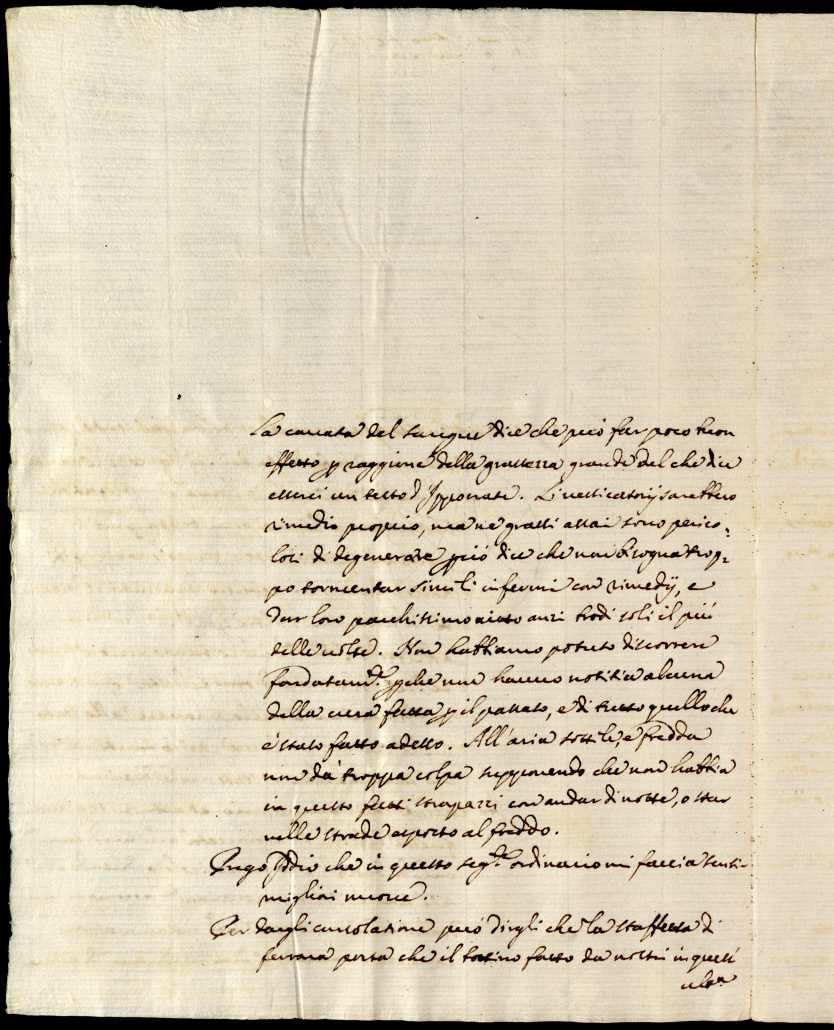 La cavata del sangue dice che può far poco buon
effetto p raggione della grassezza grande del che dice
esserci un testo d'Ippocrate. Li vessicatorij sarebbero
rimedio proprio, ma ne grassi assai sono perico:
losi di degenerare, però dice che non bisogna trop:
po tormentar simili infermi con rimedij, e
dar loro pochissimo aiuto anzi brodi soli il più
delle volte. Non habbiamo potuto discorrere
fondatam.te pche non hanno notitia alcuna
della cura fatta p il passato, e di tutto quello che
è stato fatto adesso. All'aria sottile, e fredda
non dà troppa colpa supponendo che non habbia
in questo fatti strapazzi con andar di notte, o star
nelle strade esposto al freddo.
Prego Iddio che in questo seg.te ordinario mi faccia senti-
migliori nuove.
Per dargli consolatione può dirgli che la staffetta di
ferrara porta che il bottino fatto da nostri in questi